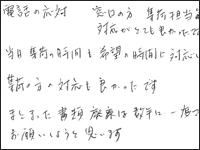 電話の応対 窓口の方 集荷担当
対応がとても良かったで
当日集荷の時間も希望の時間に対応し
集荷の方の対応も良かったです
まとまった書類 廃棄は数年に一度で
お願いしようと思います